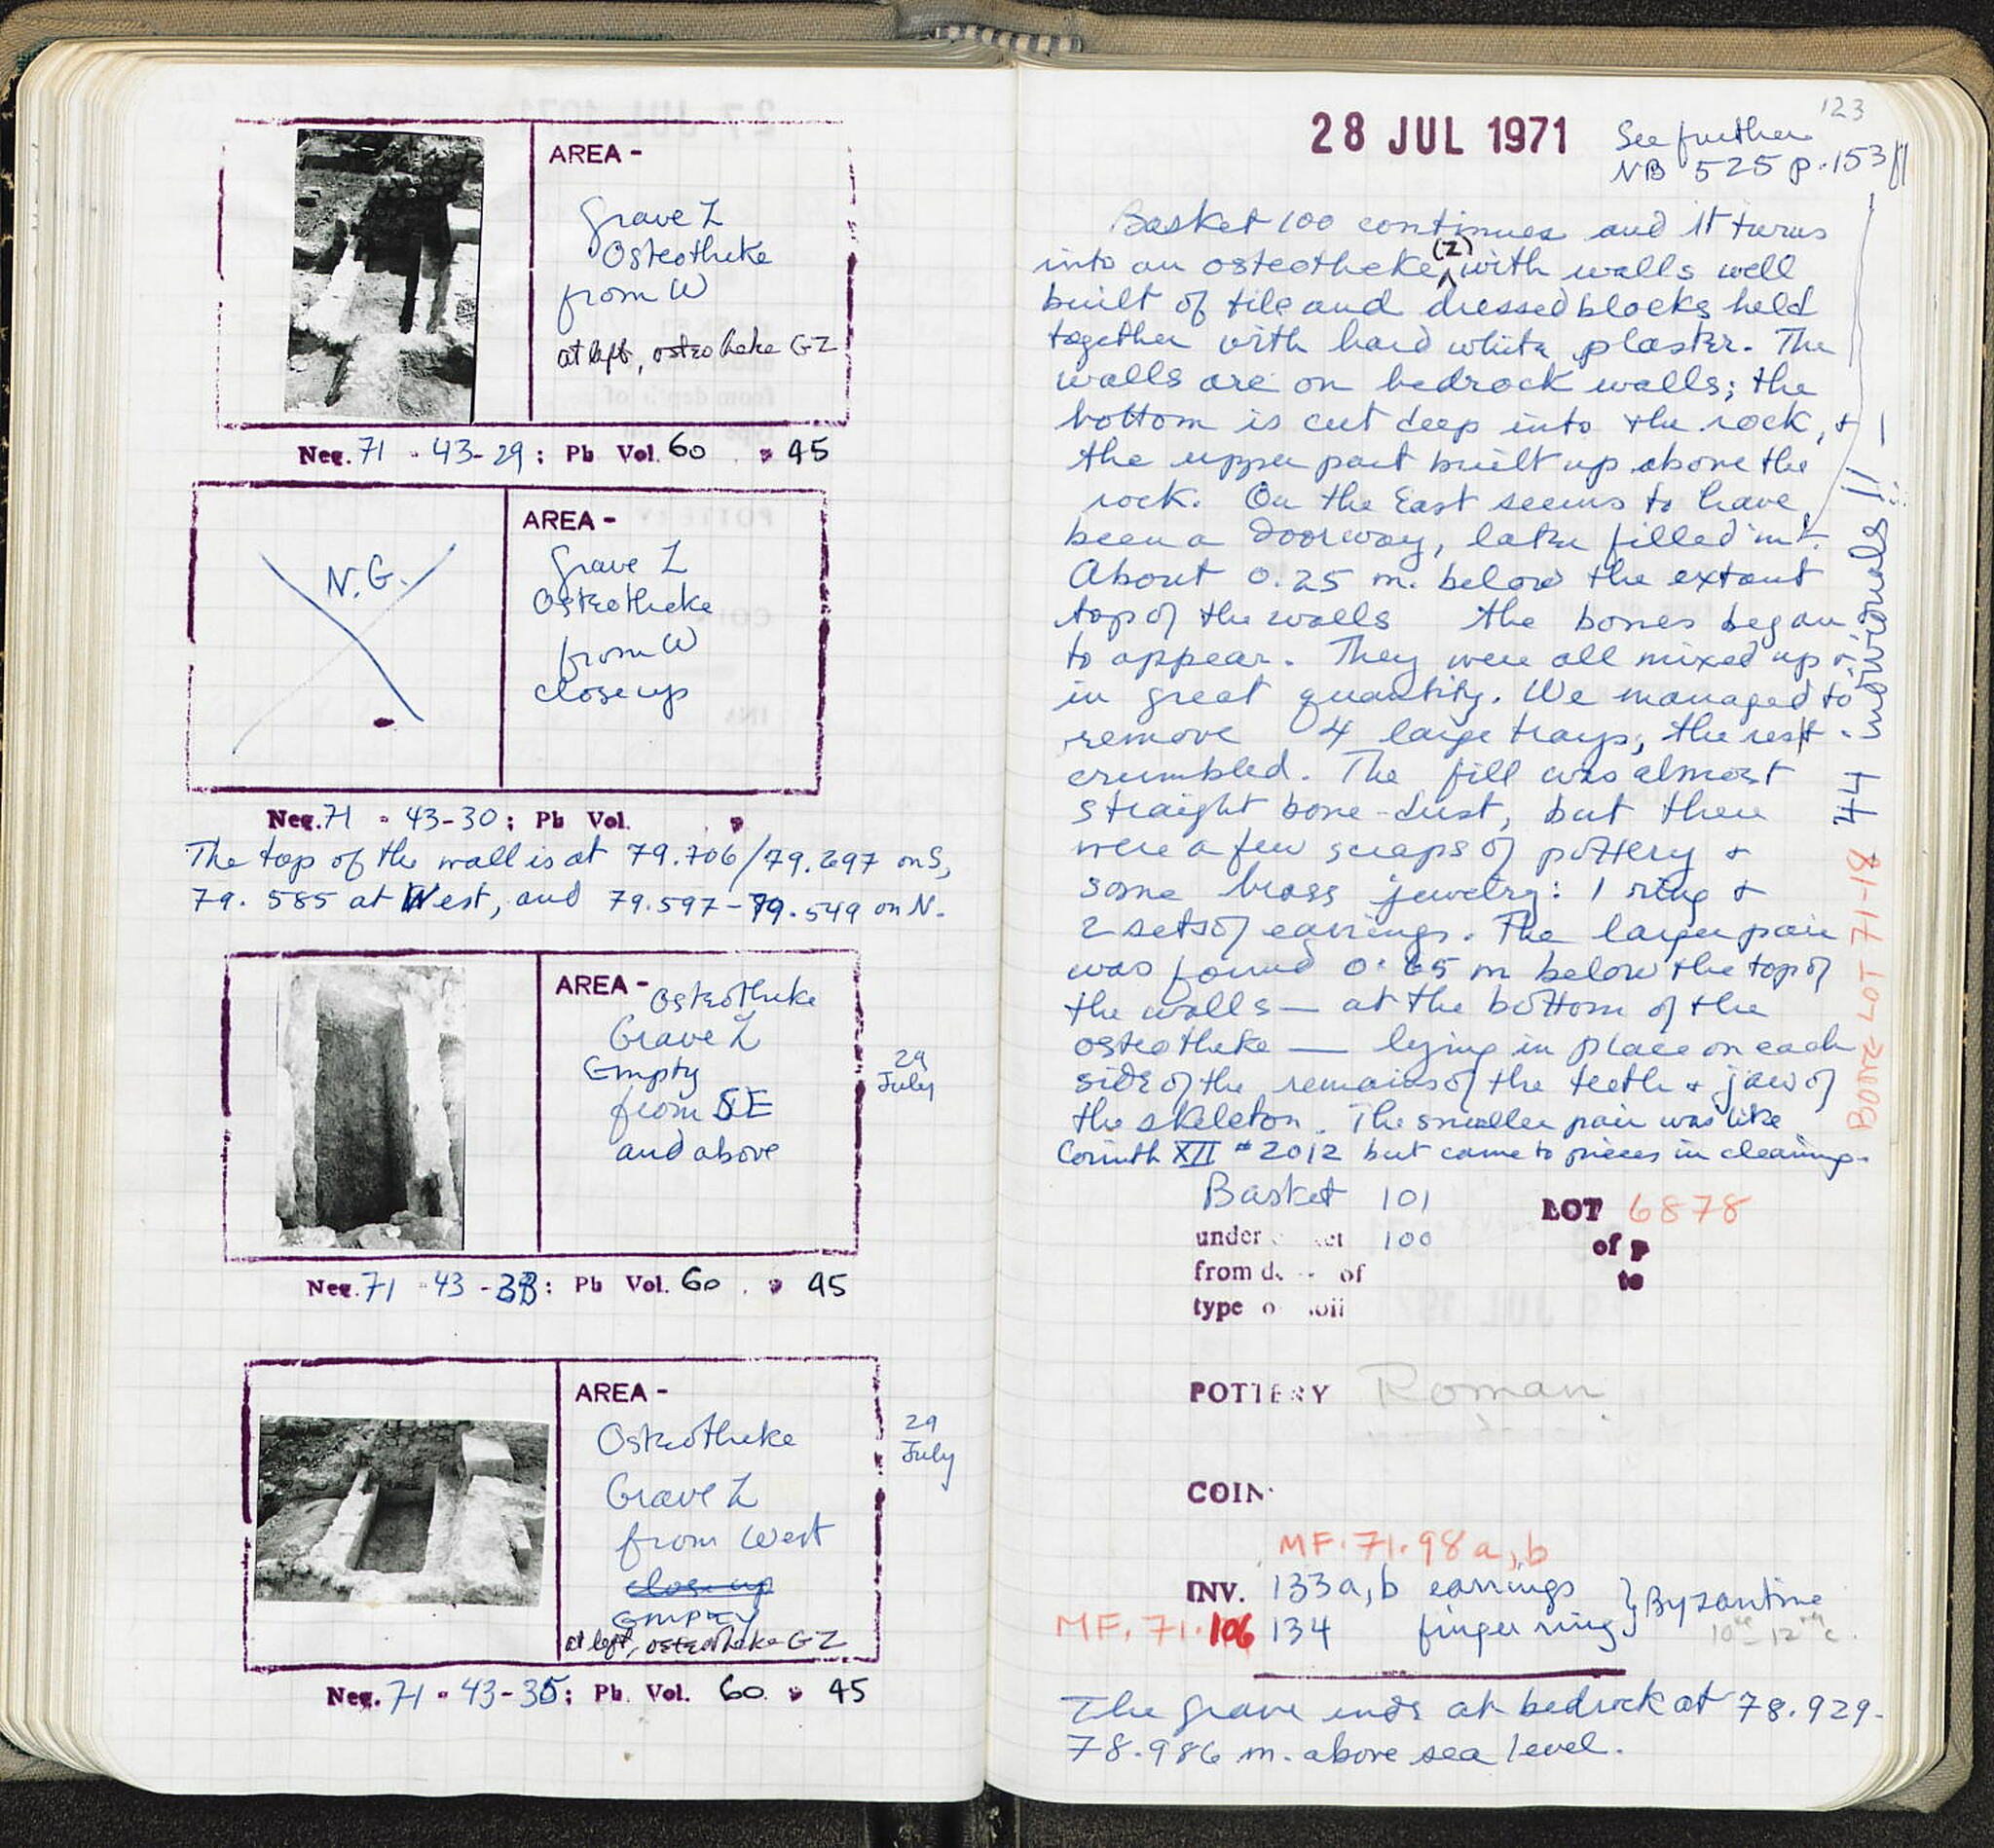 AREA -
Grave Z
Osteotheke
from W
at left, osteotheke GZ
Neg. 71 - 43-29; Pb Vol. 60 . p 45
AREA -
N.G.
Grave Z
Osteotheke
from W
close up
Neg. 71 - 43-30; Pb Vol. . p
The top of the wall is at 79.706/79.697 on S,
79.585 at West, and 79.597-79.549 on N.
AREA - Osteotheke
Grave Z
Empty
from SE
and above
29
July
Neg. 71 - 43 - 33; Pb Vol. 60 . p 45
AREA -
Osteotheke
Grave Z
from West
close up
Empty
at left, osteotheke GZ
29
July
Neg. 71 - 43-35; Pb. Vol. 60. p 45
123
28 JUL 1971
See further
NB 525 p. 153 ff
Basket 100 continues and it turns
into an osteotheke (Z) with walls well
built of tile and dressed blocks held
together with hard white plaster. The
walls are on bedrock walls; the
bottom is cut deep into the rock, &
the upper part built up above the
rock. On the East seems to have
been a doorway, later filled in.
About 0.25 m. below the extant
top of the walls the bones began
to appear. They were all mixed up &
in great quantity. We managed to
remove 4 large trays, the rest
crumbled. The fill was almost
straight bone-dust, but there
were a few scraps of pottery &
some brass jewelry: 1 ring &
2 sets of earrings. The larger pair
was found 0.65 m below the top of
the walls — at the bottom of the
osteotheke — lying in place on each
side of the remains of the teeth & jaw of
the skeleton. The smaller pair was like
Corinth XII # 2012 but came to pieces in cleaning.
BONE LOT 71-18 44 individuals !! -
Basket 101
LOT 6878
under et 100
of p
from d of
to
type o oil
POTTERY Roman
COIN
MF. 71. 98 a, b
INV. 133 a, b earrings } Byzantine
MF. 71. 106 134 finger ring
10th - 12th c.
The grave ends at bedrock at 78.929-
78.986 m. above sea level.